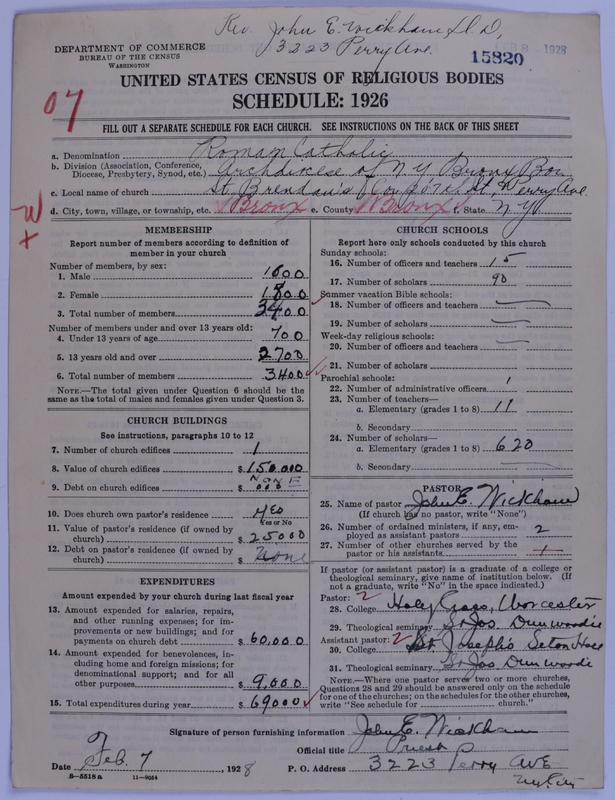 Rev. John E. Wickham, D.D,
3223 Perry Ave.
DEPARTMENT OF COMMERCE
BUREAU OF THE CENSUS
WASHINGTON
15820
8 - 1928
UNITED STATES CENSUS OF RELIGIOUS BODIES
SCHEDULE: 1926
07
FILL OUT A SEPARATE SCHEDULE FOR EACH CHURCH. SEE INSTRUCTIONS ON THE BACK OF THIS SHEET
a. Denomination Roman Catholic
b. Division (Association, Conference, Diocese, Presbytery, Synod, etc.) Archdiocese of N Y Bronx Bor.
c. Local name of church St. Brendan's Perry Ave.
d. City, town, village, or township, etc. Bronx e. County Bronx f. State N Y
MEMBERSHIP
Report number of members according to definition of
member in your church
Number of members, by sex:
1. Male 1600
2. Female 1800
3. Total number of members 3400
Number of members under and over 13 years old:
4. Under 13 years of age 700
5. 13 years old and over 2700
6. Total number of members 3400
NOTE.—The total given under Question 6 should be
same as the total of males and females given under Question 3.
CHURCH BUILDINGS
See instructions, paragraphs 10 to 12
7. Number of church edifices 1
8. Value of church edifices $ 150.000
9. Debt on church edifices $ NONE
10. Does church own pastor's residence? Yes
Yes or No
11. Value of pastor's residence (if owned by
church) $ 25000
12. Debt on pastor's residence (if owned by
church) $ None
EXPENDITURES
Amount expended by your church during last fiscal year
13. Amount expended for salaries, repairs,
and other running expenses; for im-
provements or new buildings; and for
payments on church debt $ 60,000
14. Amount expended for benevolences, in-
cluding home and foreign missions; for
denominational support; and for all
other purposes $ 9,000
15. Total expenditures during year $ 69000
CHURCH SCHOOLS
Report here only schools conducted by this church
Sunday schools:
16. Number of officers and teachers 15
17. Number of scholars 90
Summer vacation Bible schools:
18. Number of officers and teachers
19. Number of scholars
Week-day religious schools:
20. Number of officers and teachers
21. Number of scholars
Parochial schools:
22. Number of administrative officers 1
23. Number of teachers—
a. Elementary (grades 1 to 8) 11
b. Secondary
24. Number of scholars—
a. Elementary (grades 1 to 8) 620
b. Secondary
PASTOR
25. Name of pastor John E. Wickham
(If church has no pastor, write "None")
26. Number of ordained ministers, if any, em-
ployed as assistant pastors 2
27. Number of other churches served by the
pastor or his assistants
If pastor (or assistant pastor) is a graduate of a college or
theological seminary, give name of institution below. (If
not a graduate, write "No" in the space indicated.)
Pastor: 2
28. College Holy Cross, Worcester
29. Theological seminary St Jos. Dunwoodie
Assistant pastor: 2
30. College St Joseph's Seton Hall
31. Theological seminary St Jos. Dunwoodie
NOTE.—Where one pastor serves two or more churches,
Questions 28 and 29 should be answered only on the schedule
for one of the churches; on the schedules for the other churches,
write "See schedule for church."
Signature of person furnishing information John E. Wickham
Official title Priest
Date Feb. 7, 1928 P. O. Address 3223 Perry AVE
8—5518 a 11—9054